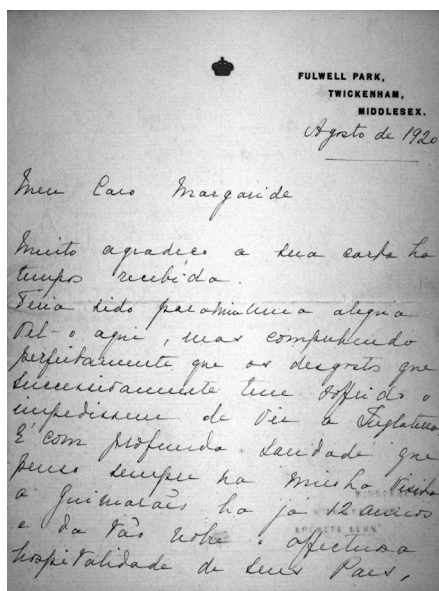 FULWELL PARK,
TWICKENHAM,
MIDDLESEX.
Agosto de 1920
Meu Caro Margaride
Muito agradeco a sua carta ha
tempos recebida.
Teria sido para mim uma alegria
vel-o aqui, mas comprehendo
perfeitamente que os desgostos que
successivamente tem soffrido o
impedissem de vir a Inglaterra
É com profunda saudade que
penso sempre na minha visita
a Guimarães ha ja 12 annos
e da tão nobre e affectuosa
hospitalidade de seus Paes,